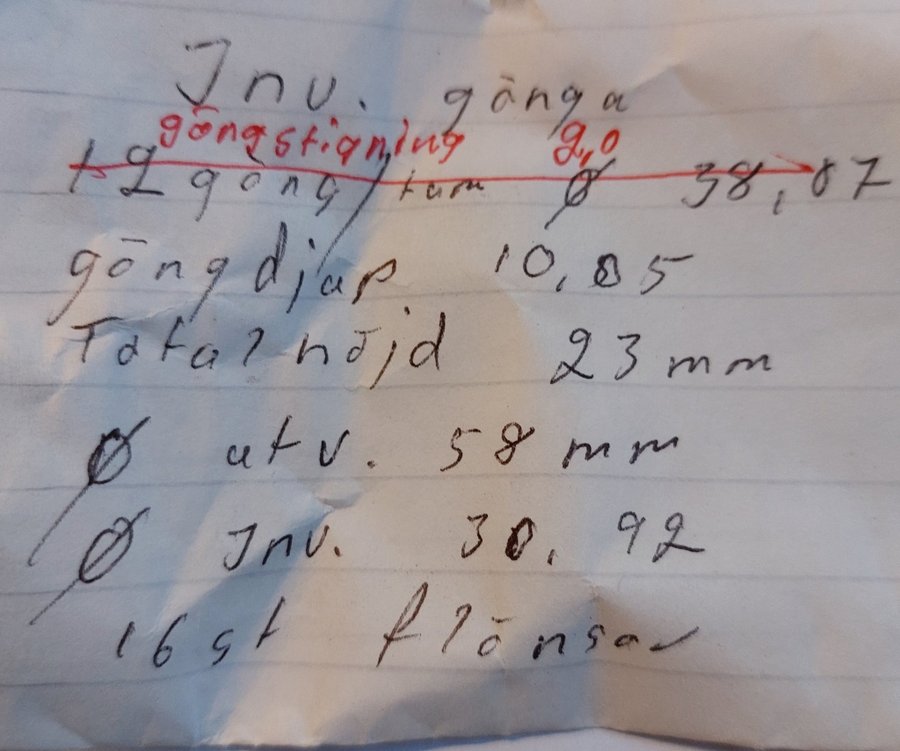 Inv. gänga
gängstigning 2,0
12 gäng/tum Ø 38,87
gängdjup 10,05
Total höjd 23mm
Ø utv. 58 mm
Ø Inv. 30.92
16 st flänsar